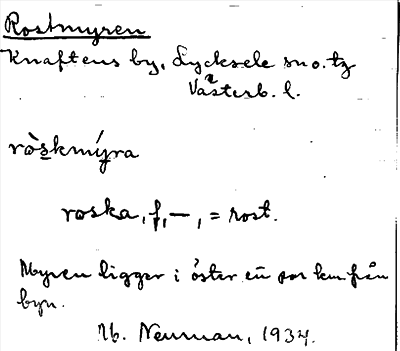 Rostmyren
Knaftens by, Lycksele sn o. tg
Västerb. l.
ròskmýra
roska, f, —, = rost.
Myren ligger i öster en par km. från
byn.
Neuman, 1934.